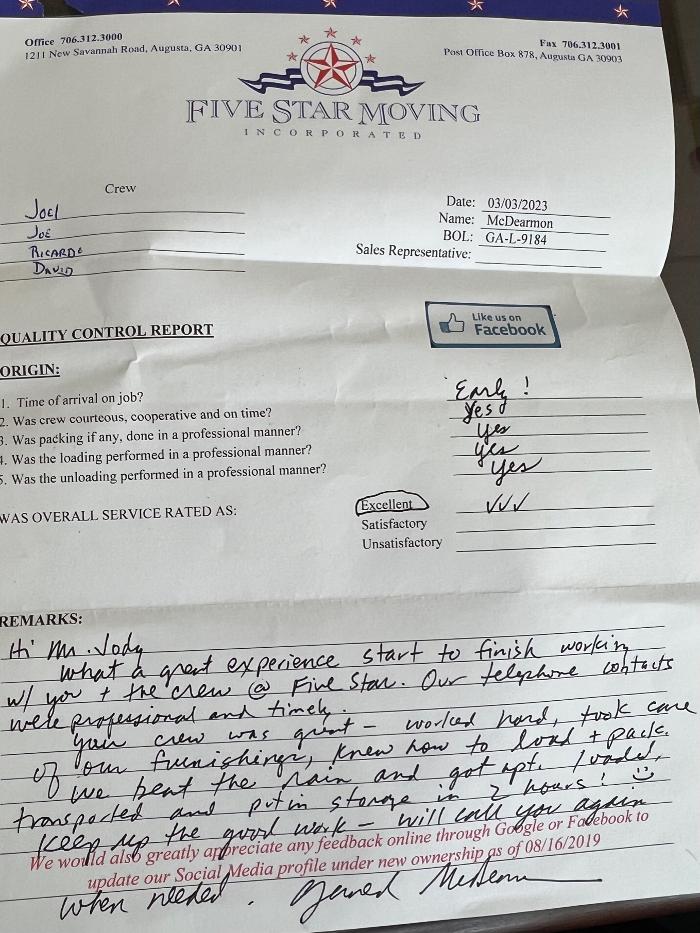 Office 706.312.3000
1211 New Savannah Road, Augusta, GA 30901
Fax 706.312.3001
Post Office Box 878, Augusta GA 30903
FIVE STAR MOVING
INCORPORATED
Crew
Joel
JOE
RICARDO
DAVID
Date: 03/03/2023
Name: McDearmon
BOL: GA-L-9184
Sales Representative:
QUALITY CONTROL REPORT
Like us on
Facebook
ORIGIN:
1. Time of arrival on job? Early!
2. Was crew courteous, cooperative and on time? Yes
3. Was packing if any, done in a professional manner? yes
4. Was the loading performed in a professional manner? yes
5. Was the unloading performed in a professional manner? yes
WAS OVERALL SERVICE RATED AS: Excellent ✓✓✓
Satisfactory
Unsatisfactory
REMARKS:
Hi Mr. Jody
What a great experience start to finish working
w/ you + the crew @ Five Star. Our telephone contacts
were professional and timely.
Your crew was great – worked hard, took care
of our furnishings, knew how to load + pack.
We beat the rain and got apt. loaded,
transported and put in storage in 2 hours! ☺
Keep up the good work – will call you again
We would also greatly appreciate any feedback online through Google or Facebook to
update our Social Media profile under new ownership as of 08/16/2019
when needed.